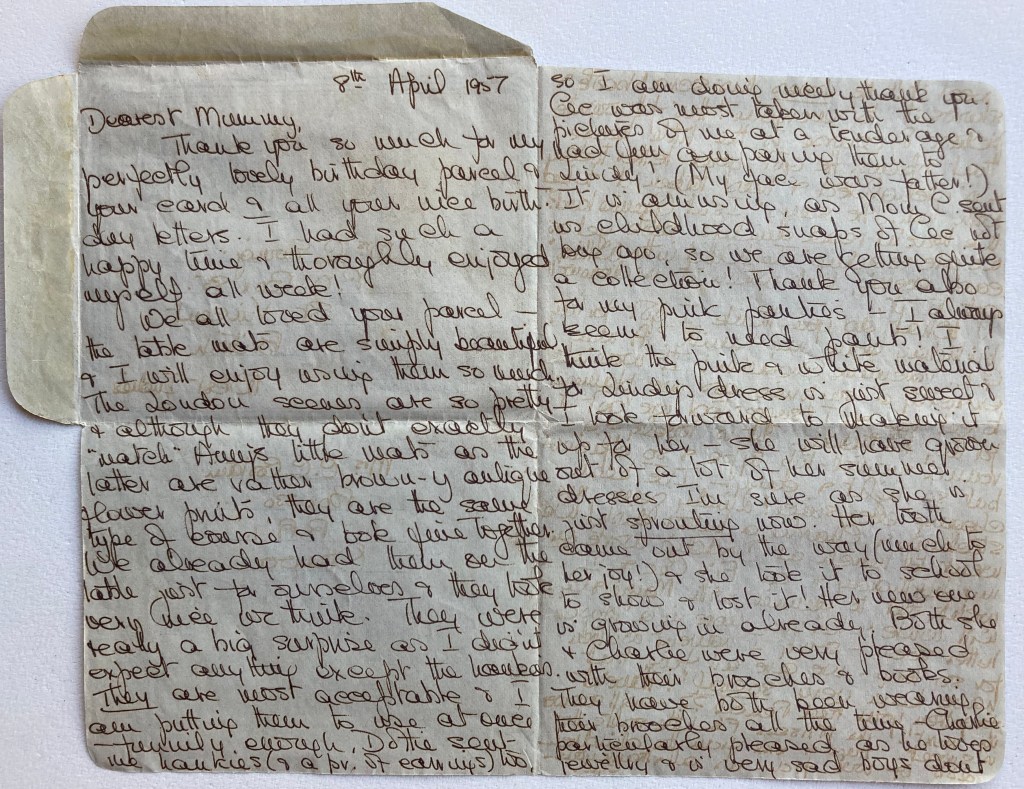 8th April 1957
Dearest Mummy,
Thank you so much for my
perfectly lovely birthday parcel &
your card & all your nice birth-
day letters. I had such a
happy time & thoroughly enjoyed
myself all week!
We all loved your parcel –
the table mats are simply beautiful
& I will enjoy using them so much.
The London scenes are so pretty
& although they don't exactly
"match" little mats as the
latter are rather brown-y antique
flower prints they are the same
type of course & look fine together.
We already had them on the
table just for ourselves & they look
very nice we think. They were
really a big surprise as I didn't
expect anything except the hankies.
They are most acceptable & I
am putting them to use at once
– funnily enough, Dottie sent
me hankies (& a pr. of earrings) too,
so I am doing nicely thank you.
Cec was most taken with the
pictures of me at a tender age &
had fun comparing them to
Lindy! (My face was fatter!)
It is amusing, as Mom C sent
us childhood snaps of Cec not
long ago, so we are getting quite
a collection! Thank you also
for my pink panties – I always
seem to need pants! I
think the pink & white material
for Lindy's dress is just sweet &
I look forward to making it
up for her – she will have grown
out of a lot of her summer
dresses I'm sure as she is
just sprouting now. Her tooth
came out by the way (much to
her joy!) & she took it to school
to show & lost it! Her new one
is growing in already. Both she
& Charlie were very pleased
with their brooches & books.
They have both been wearing
their brooches all the time – Charlie
particularly pleased as he loves
jewellry & is very sad boys don't